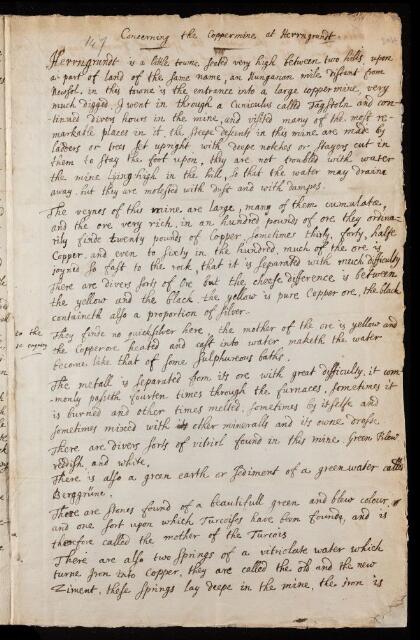 Concerning the Coppermine at Herrngrundt.
147
Herrngrundt is a little towne seated very high between two hills, upon
a part of land of the same name, an Hungarian mile distant from
Newsol. in this towne is the entrance into a large coppermine, very
much digged. I went in through a Cuniculus called Tagstoln and con-
tinued divers hours in the mine, and visited many of the most re-
markable places in it, the steepe descents in this mine are made by
ladders or trees set upright, with deepe notches or stayers cut in
them to stay the foot upon, they are not troubled with water
the mine lying high in the hill, so that the water may draine
away. but they are molested with dust and with dampes.
The veynes of this mine are large, many of them cumulatæ,
and the ore very rich, in an hundred pounds of ore they ordina-
rily finde twenty pounds of Copper sometimes thirty, forty, halfe
Copper, and even to sixty in the hundred, much of the ore is
joynid so fast to the rock, that it is separated with much difficulty
There are divers sorts of Ore but the cheefe difference is between
the yellow and the black, the yellow is pure Copper ore, the black
containeth also a proportion of silver.
to the
They finde no quicksilver here, the mother of the ore is yellow and
the Copper ore heated and cast into water, maketh the water
become like that of some sulphureous baths.
The metall is separated from its ore with great difficulty, it com
-monly passeth fourten times through the furnaces, sometimes it
is burned and other times melted, sometimes by itselfe and
sometimes mixed with other mineralls and its owne drosse.
There are divers sorts of vitriol found in this mine. Green Blew
redish, and white,
There is also a green earth or sediment of a green water called
Berggrüne.
There are stones found of a beautifull green and blew colour,
and one sort upon which Turcoises have been founde, and is
therefore called the mother of the Turcois
There are also two springs of a vitriolate water which
turne Iron into Copper, they are called the old and the new
Ziment, these springs lay deepe in the mine, the iron is